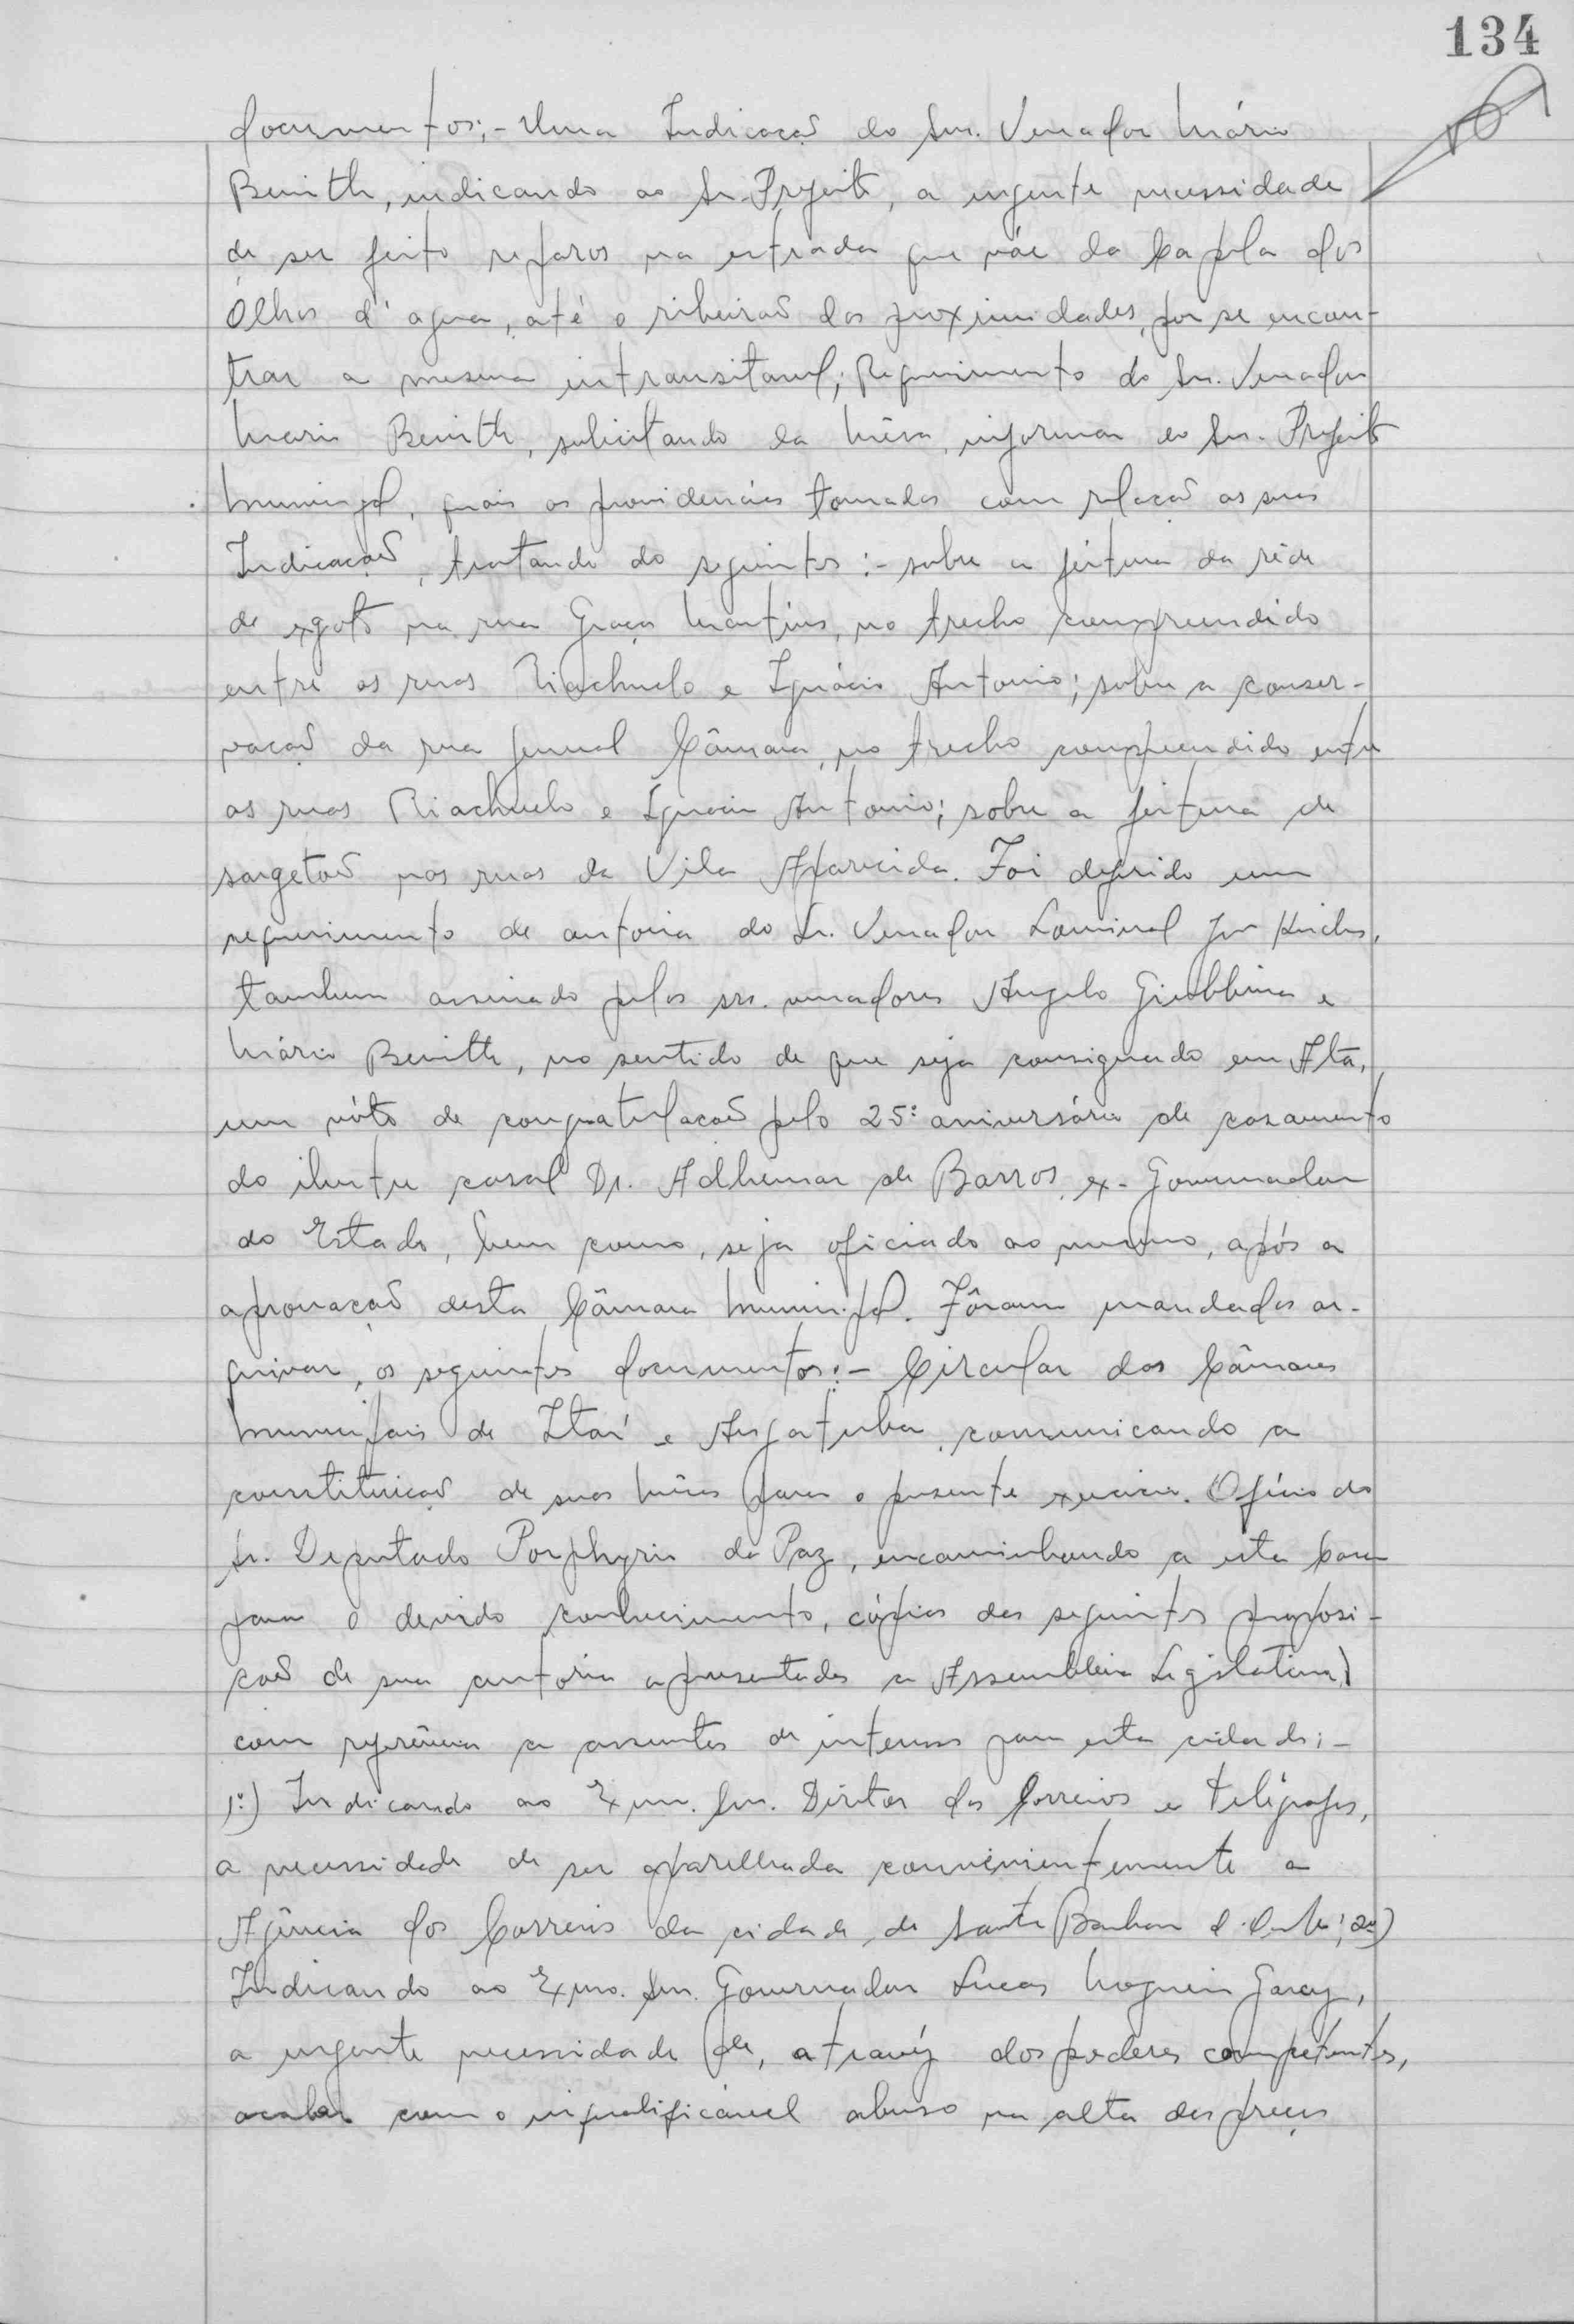 134
documentos:- Uma Indicação do Snr. Vereador Mário
Benith, indicando ao Sr. Prefeito, a urgente necessidade
de ser feito reparos na estrada que váe da Capela dos
Ólhos d'agua, até o ribeirão das proximidades, por se encon-
trar a mesma intransitavel; Requerimento do Snr. Vereador
Mario Benith, solicitando da Mêsa, informar ao Snr. Prefeito
Municipal, quais as providencias tomadas com relação as suas
Indicação, tratando do seguintes:- sobre a feitura da rêde
de exgoto na rua Graça Martins, no trecho compreendido
entre as ruas Riachuelo e Ignácio Antonio; sobre a conser-
vação da rua General Câmara, no trecho compreendido entre
as ruas Riachuelo e Ignacio Antonio; sobre a feitura de
sargetão nas ruas da Vila Aparecida. Foi deferido um
requerimento de autoria do Sr. Vereador
tambem assinado pelos srs. vereadores Angelo Giubbina e
Mário Benith, no sentido de que seja consignado em Ata,
um vóto de congratulação pelo 25º aniversário de casamento
do ilustre casal Dr. Adhemar de Barros, ex-Governador
do Estado, bem como, seja oficiado ao mesmo, após a
aprovação desta Câmara Municipal. Fôram mandados ar-
quivar, os seguintes documentos:- Circular das Câmaras
Municipais de Itaí e Angatuba, comunicando a
constituição de suas Mêsas para o presente exercicio. Oficio do
Sr. Deputado Porphyrio da Paz, encaminhando a esta Casa
para o devido conhecimento, cópias das seguintes proposi-
ção de sua autoria apresentadas a Assembleia Legislativa,
com referência a assuntos de interesse para esta cidade:-
1º) Indicando ao Exmo. Snr. Diretor dos Correios e Telégrafos,
a necessidade de ser aparelhada convenientemente a
Agência dos Correios da cidade de Santa Barbara d'Oeste; 2º)
Indicando ao Exmo. Snr. Governador Lucas Nogueira Garcez,
a urgente necessidade de, através dos poderes competentes,
acabar com o inqualificável abuso na alta dos preços